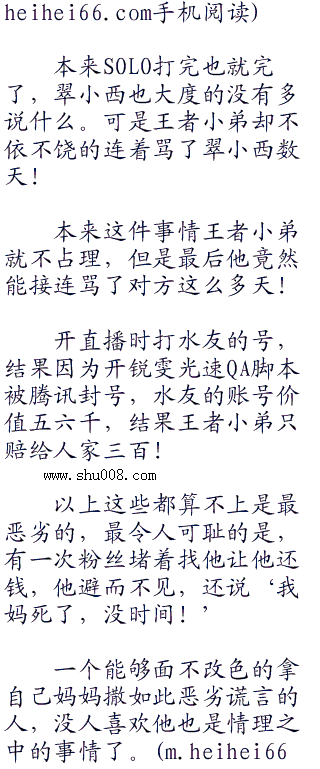 heihei66.com手机阅读)
本来SOLO打完也就完
了，翠小西也大度的没有多
说什么。可是王者小弟却不
依不饶的连着骂了翠小西数
天！
本来这件事情王者小弟
就不占理，但是最后他竟然
能接连骂了对方这么多天！
开直播时打水友的号，
结果因为开锐雯光速QA脚本
被腾讯封号，水友的账号价
值五六千，结果王者小弟只
赔给人家三百！
www.shu008.com
以上这些都算不上是最
恶劣的，最令人可耻的是，
有一次粉丝堵着找他让他还
钱，他避而不见，还说‘我
妈死了，没时间！’
一个能够面不改色的拿
自己妈妈撒如此恶劣谎言的
人，没人喜欢他也是情理之
中的事情了。(m.heihei66